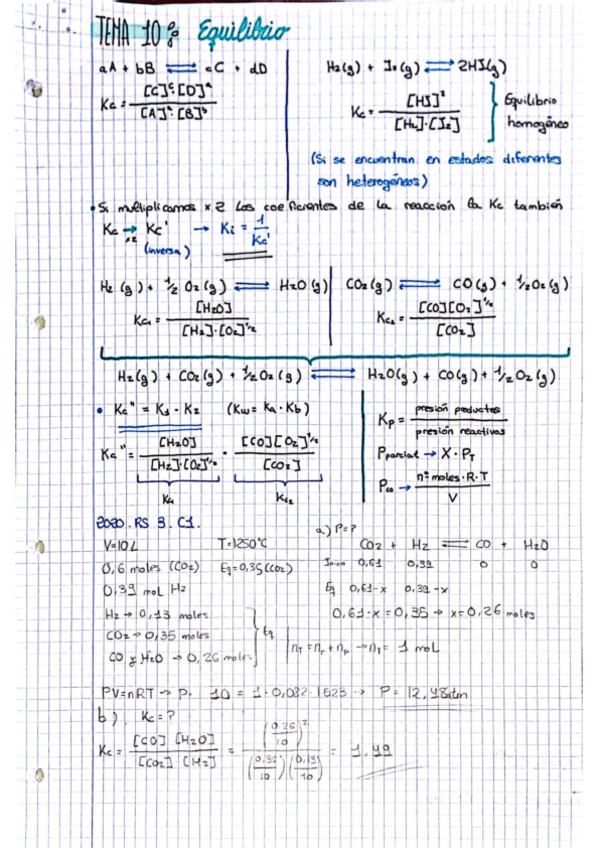 TEMA 10: Equilibrio
aA + bB ⇌ cC + dD
Kc = [C]ᶜ·[D]ᵈ / [A]ᵃ·[B]ᵇ
H₂(g) + I₂(g) ⇌ 2HI(g)
Kc = [HI]² / [H₂]·[I₂]
Equilibrio homogéneo
(Si se encuentran en estados diferentes
son heterogéneos)
• Si multiplicamos x2 los coeficientes de la reacción la Kc también
Kc →x2 Kc' → Ki = 1/Kc'
(inversa)
H₂(g) + 1/2 O₂(g) ⇌ H₂O(g)
Kc₁ = [H₂O] / [H₂]·[O₂]^1/2
CO₂(g) ⇌ CO(g) + 1/2 O₂(g)
Kc₂ = [CO][O₂]^1/2 / [CO₂]
H₂(g) + CO₂(g) + 1/2 O₂(g) ⇌ H₂O(g) + CO(g) + 1/2 O₂(g)
• Kc'' = K₁·K₂ (Kw = Ka·Kb)
Kc'' = [H₂O] / [H₂]·[O₂]^1/2 · [CO][O₂]^1/2 / [CO₂]
Kc₁ Kc₂
Kp = presión productos / presión reactivos
Pparcial → X·PT
→ nº moles·R·T / V
2020. RS 3. C1.
V=10L T=1250°C
0,6 moles (CO₂) Eq=0,35(CO₂)
0,39 mol H₂
H₂ → 0,13 moles
CO₂ → 0,35 moles
CO y H₂O → 0,26 moles
Eq
a) P=?
CO₂ + H₂ ⇌ CO + H₂O
Inicio 0,61 0,39 0 0
Eq 0,61-x 0,39-x
0,61-x = 0,35 → x = 0,26 moles
nT = nr + np → nT = 1 mol
PV=nRT → P· 10 = 1·0,082·1523 → P= 12,48atm
b) Kc = ?
Kc = [CO] [H₂O] / [CO₂] [H₂] = (0.26/10)² / (0,35/10)(0,13/10) = 1.49